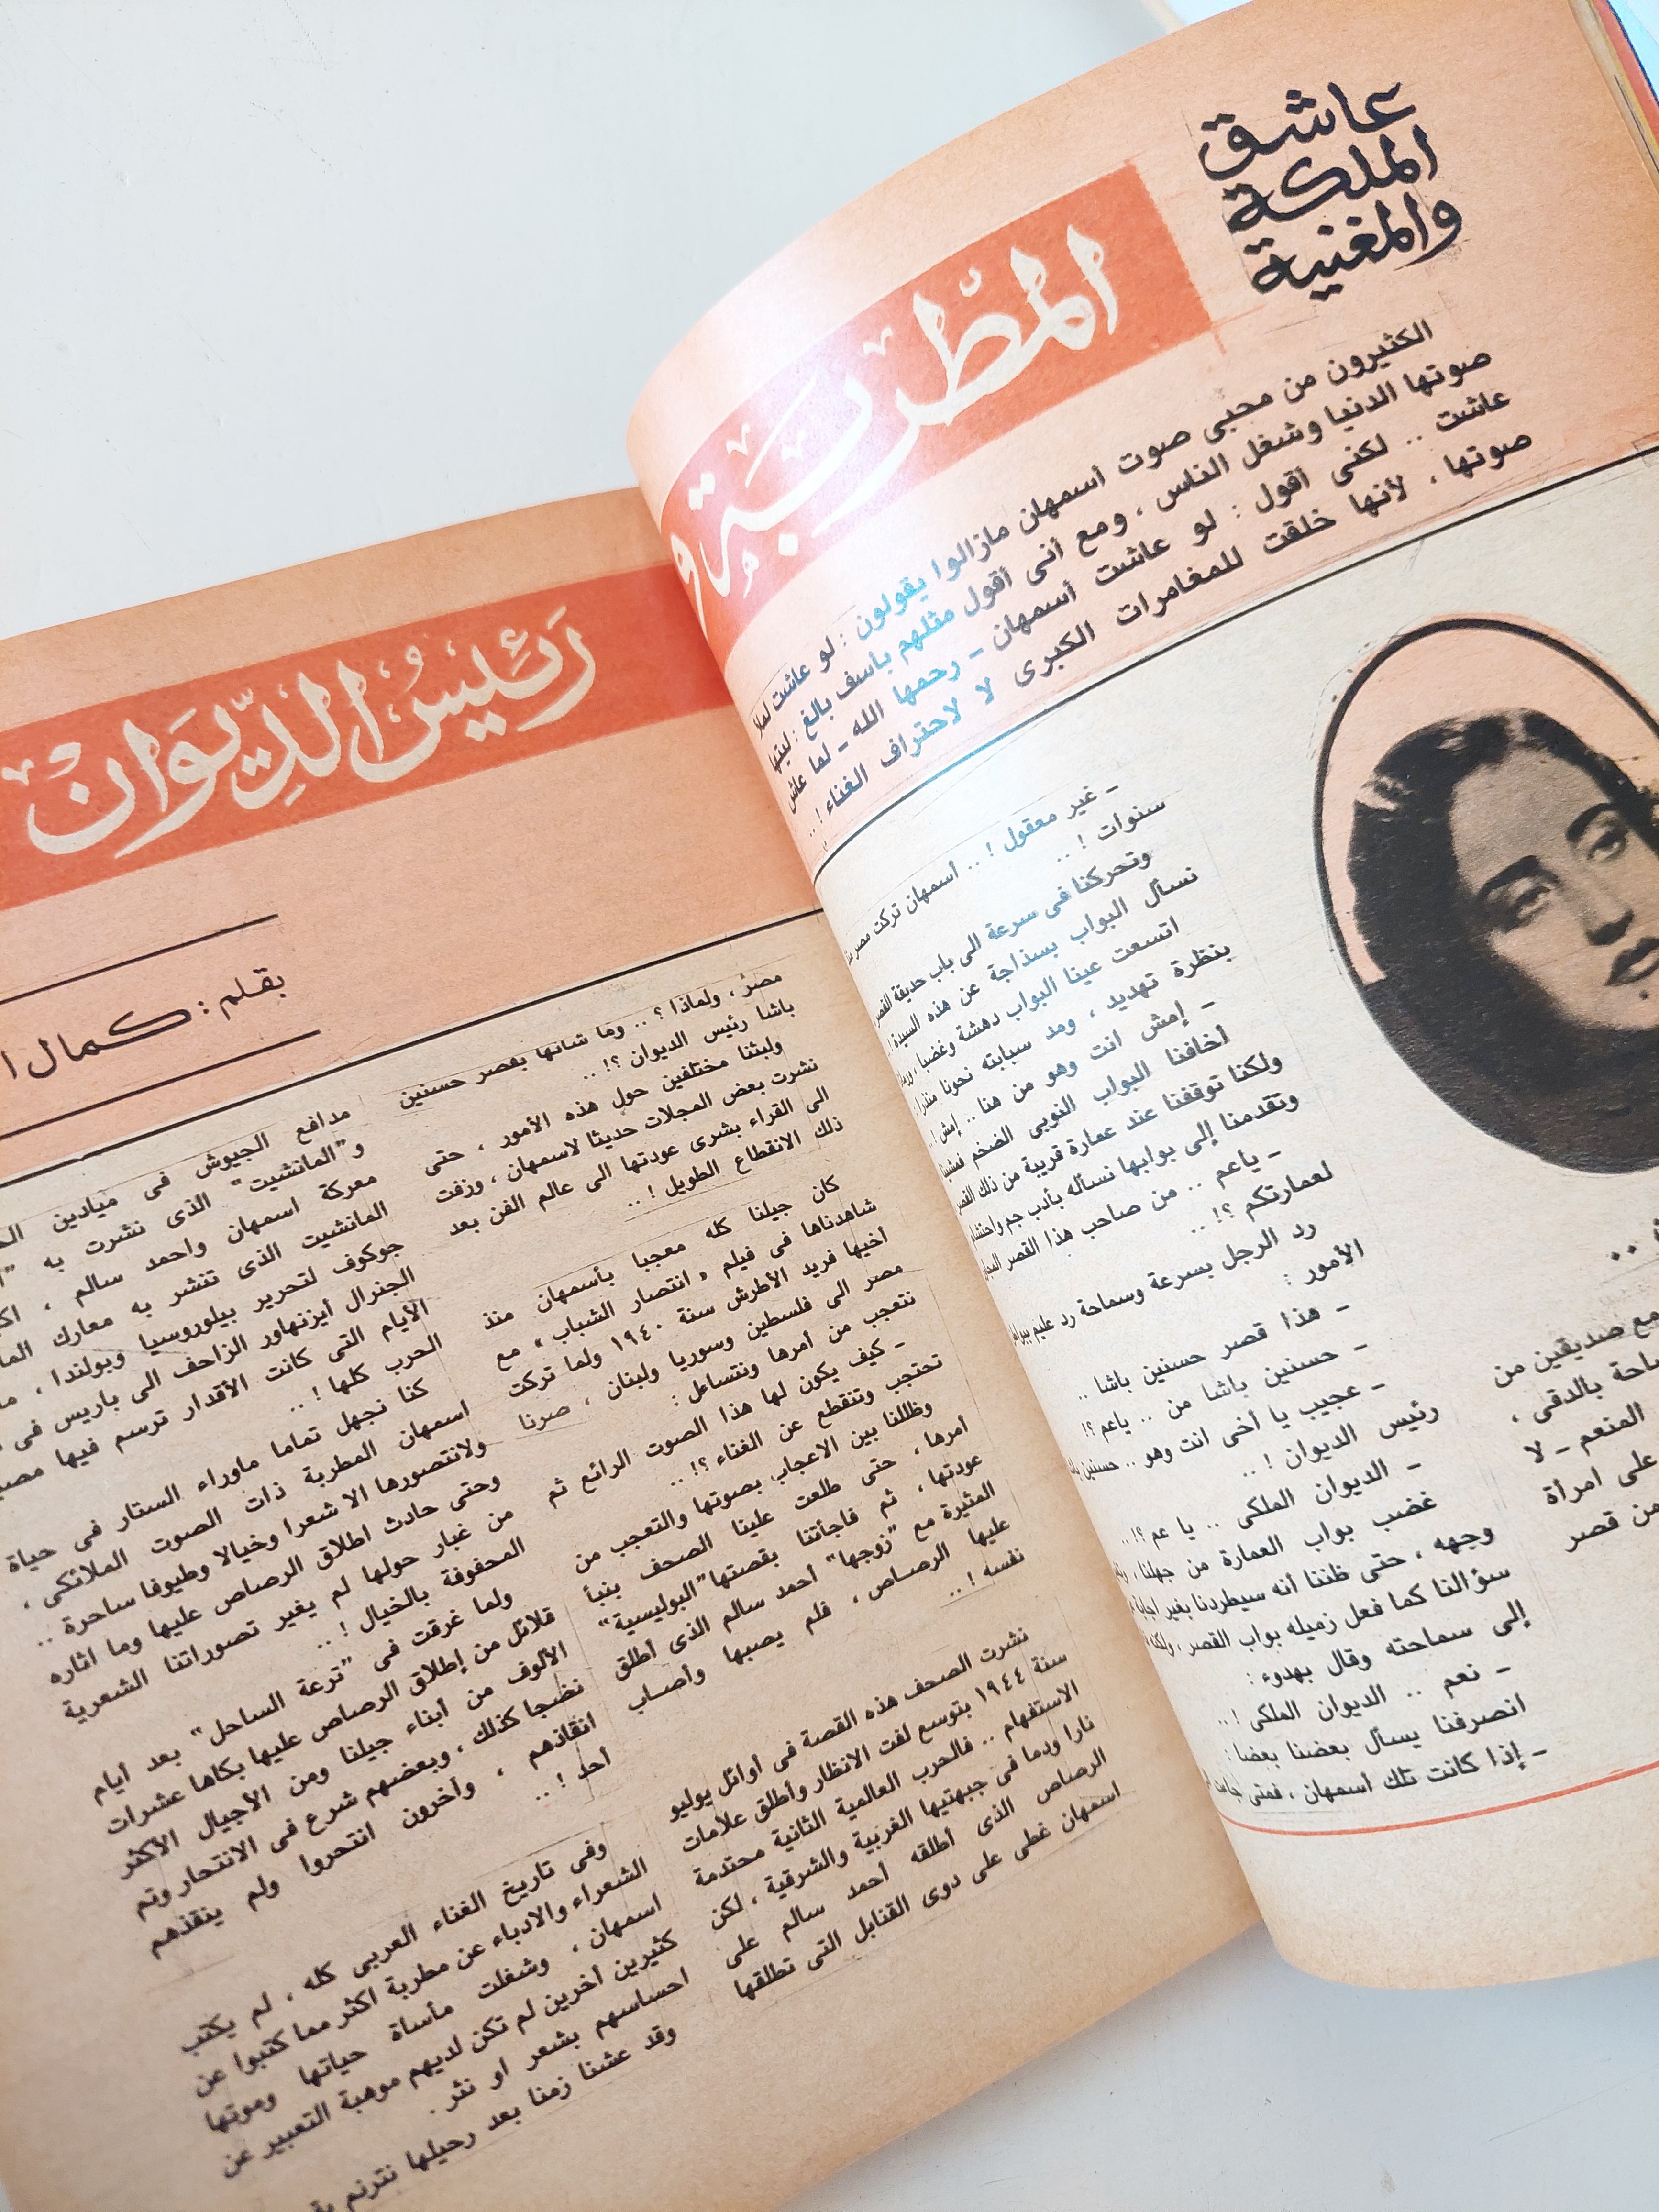 عاشق
الملكة
والمغنية
المطربة و
رئيس الديوان
الكثيرون من محبى صوت أسمهان مازالوا يقولون : لو عاشت لملأ
صوتها الدنيا وشغل الناس ، ومع أنى أقول مثلهم بأسف بالغ : ليتها
عاشت .. لكنى أقول : لو عاشت أسمهان - رحمها الله - لما عاش
صوتها ، لأنها خلقت للمغامرات الكبرى لا لاحتراف الغناء ! ..
بقلم : كمال
مع صديقين من
بالدقى ،
المنعم - لا
على امرأة
من قصر
- غير معقول ! .. أسمهان تركت مصر
سنوات ! ..
وتحركنا فى سرعة الى باب حديقة القصر
نسأل البواب بسذاجة عن هذه السيدة
اتسعت عينا البواب دهشة وغضبا ،
بنظرة تهديد ، ومد سبابته نحونا
- إمش انت وهو من هنا .. إمش ! ..
أخافنا البواب النوبى الضخم
ولكنا توقفنا عند عمارة قريبة من ذلك القصر
وتقدمنا إلى بوابها نسأله بأدب جم
- ياعم .. من صاحب هذا القصر
لعمارتكم ؟! ..
رد الرجل بسرعة وسماحة رد عليم
الأمور :
- هذا قصر حسنين باشا ..
- حسنين باشا من .. ياعم ؟!
- عجيب يا أخى انت وهو .. حسنين
رئيس الديوان ! ..
- الديوان الملكى .. يا عم ؟! ..
غضب بواب العمارة من جهلنا ،
وجهه ، حتى ظننا أنه سيطردنا بغير
سؤالنا كما فعل زميله بواب القصر ،
إلى سماحته وقال بهدوء :
- نعم .. الديوان الملكى ! ..
انصرفنا يسأل بعضنا بعضا :
- إذا كانت تلك أسمهان ، فمتى
مصر ، ولماذا ؟ .. وما شأنها بقصر حسنين
باشا رئيس الديوان ؟! ..
ولبثنا مختلفين حول هذه الأمور ، حتى
نشرت بعض المجلات حديثا لاسمهان ، وزفت
الى القراء بشرى عودتها الى عالم الفن بعد
ذلك الانقطاع الطويل ! ..
كان جيلنا كله معجبا بأسمهان منذ
شاهدناها فى فيلم « انتصار الشباب » مع
أخيها فريد الأطرش سنة ١٩٤٠ ولما تركت
مصر الى فلسطين وسوريا ولبنان ، صرنا
نتعجب من أمرها ونتساءل :
- كيف يكون لها هذا الصوت الرائع ثم
تحتجب وتنقطع عن الغناء ؟! ..
وظللنا بين الاعجاب بصوتها والتعجب من
أمرها ، حتى طلعت علينا الصحف بنبأ
عودتها ، ثم فاجأتنا بقصتها "البوليسية"
المثيرة مع "زوجها" أحمد سالم الذى أطلق
عليها الرصاص ، فلم يصبها وأصاب
نفسه ! ..
نشرت الصحف هذه القصة فى أوائل يوليو
سنة ١٩٤٤ بتوسع لفت الانظار وأطلق علامات
الاستفهام .. فالحرب العالمية الثانية محتدمة
نارا ودما فى جبهتيها الغربية والشرقية ، لكن
الرصاص الذى أطلقه أحمد سالم على
اسمهان غطى على دوى القنابل التى تطلقها
مدافع الجيوش فى ميادين
و"المانشيت" الذى نشرت به
معركة اسمهان واحمد سالم ،
المانشيت الذى تنشر به معارك
جوكوف لتحرير بيلوروسيا وبولندا ،
الجنرال أيزنهاور الزاحف الى باريس فى
الأيام التى كانت الأقدار ترسم فيها
الحرب كلها ! ..
كنا نجهل تماما ماوراء الستار فى حياة
اسمهان المطربة ذات الصوت الملائكى ،
ولانتصورها الا شعرا وخيالا وطيوفا ساحرة ..
وحتى حادث اطلاق الرصاص عليها وما اثاره
من غبار حولها لم يغير تصوراتنا الشعرية
المحفوفة بالخيال ! ..
ولما غرقت فى "ترعة الساحل" بعد أيام
قلائل من إطلاق الرصاص عليها بكاها عشرات
الألوف من أبناء جيلنا ومن الأجيال الأكثر
نضجا كذلك ، وبعضهم شرع فى الانتحار وتم
انقاذهم ، وآخرون انتحروا ولم ينقذهم
أحد ! ..
وفى تاريخ الغناء العربى كله ، لم يكتب
الشعراء والادباء عن مطربة اكثر مما كتبوا عن
اسمهان ، وشغلت مأساة حياتها وموتها
كثيرين آخرين لم تكن لديهم موهبة التعبير عن
احساسهم بشعر او نثر .
وقد عشنا زمنا بعد رحيلها نترنم